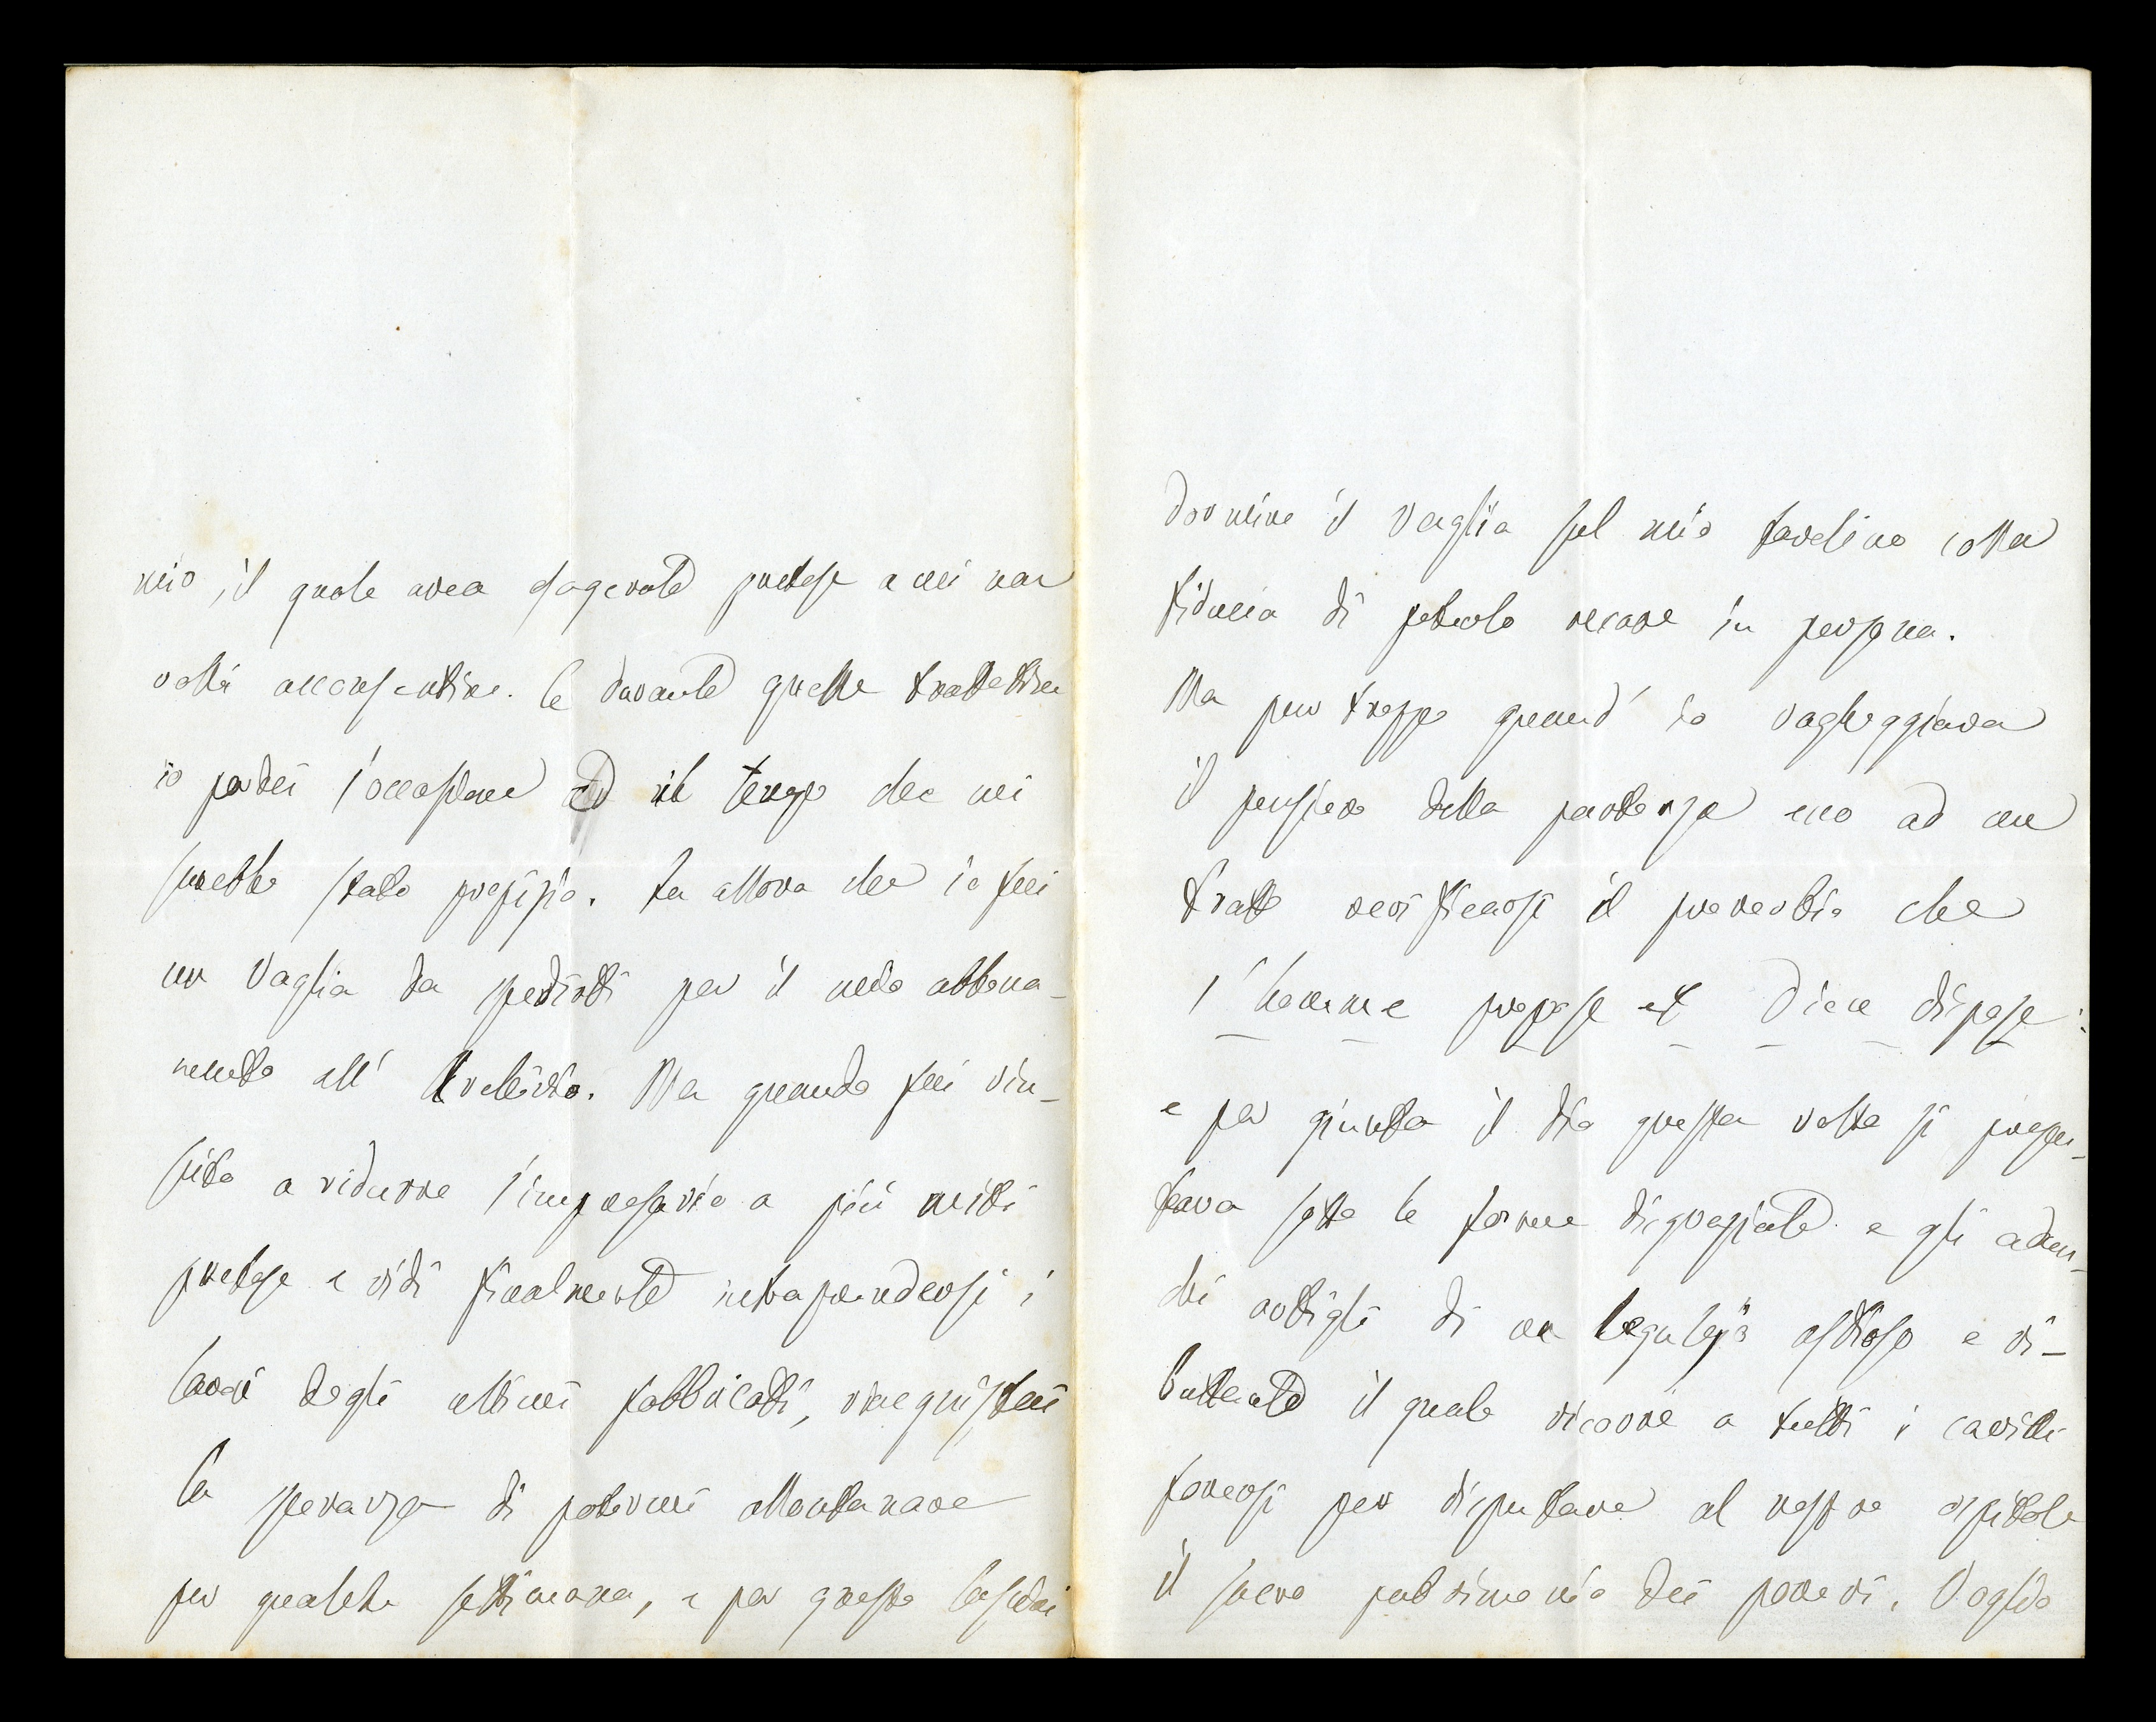 mio, il quale avea esagerate pretese a cui non
volli acconsentire. E durante quelle trattative
io perdei l'occasione ed il tempo che mi
sarebbe stato propizio. Fu allora che io feci
un vaglia da spedirti per il mio abbona-
mento all' Archivio. Ma quando fui riu-
scito a ridurre l'impresario a più miti
pretese e vidi finalmente intraprendersi i
lavori degli ultimi fabbricati, riacquistai
la speranza di potermi allontanare
per qualche settimana, e per questo lasciai
dormire il vaglia sul mio tavolino colla
fiducia di potervelo recare in persona.
Ma pur troppo quand' io vagheggiava
il pensiero della partenza ecco ad un
tratto verificarsi il proverbio che
l'homme propose et Dieu dispose:
e per giunta il dio questa volta si presen-
tava sotto le forme disgraziate e gli adun-
chi artigli di un legulejo astioso e ri-
buttante il quale ricorre a tutti i cavilli
forensi per disputare al nostro ospitale
il sacro patrimonio dei poveri. Voglio